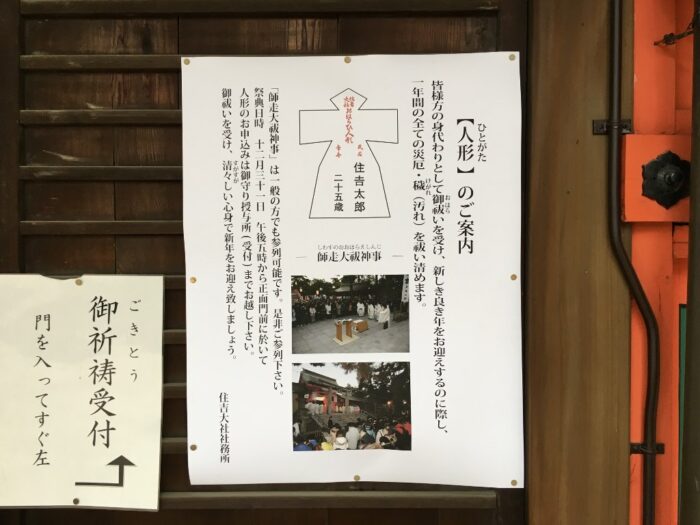 【人形】のご案内
ひとがた
皆様方の身代わりとして御祓いを受け、新しき良き年をお迎えするのに際し、
おはら
一年間の全ての災厄・穢（汚れ）を祓い清めます。
けがれ
住吉大社おはらひ人形
氏名
年令
住吉太郎
二十五歳
しわすのおおはらえしんじ
師走大祓神事
「師走大祓神事」は一般の方でも参列可能です。是非ご参列下さい。
祭典日時 十二月三十一日 午後五時から正面門前に於いて
人形のお申込みは御守り授与所(受付)までお越し下さい。
御祓いを受け、清々しい心身で新年をお迎え致しましょう。
すがすが
住吉大社社務所
ごきとう
御祈祷受付
門を入ってすぐ左